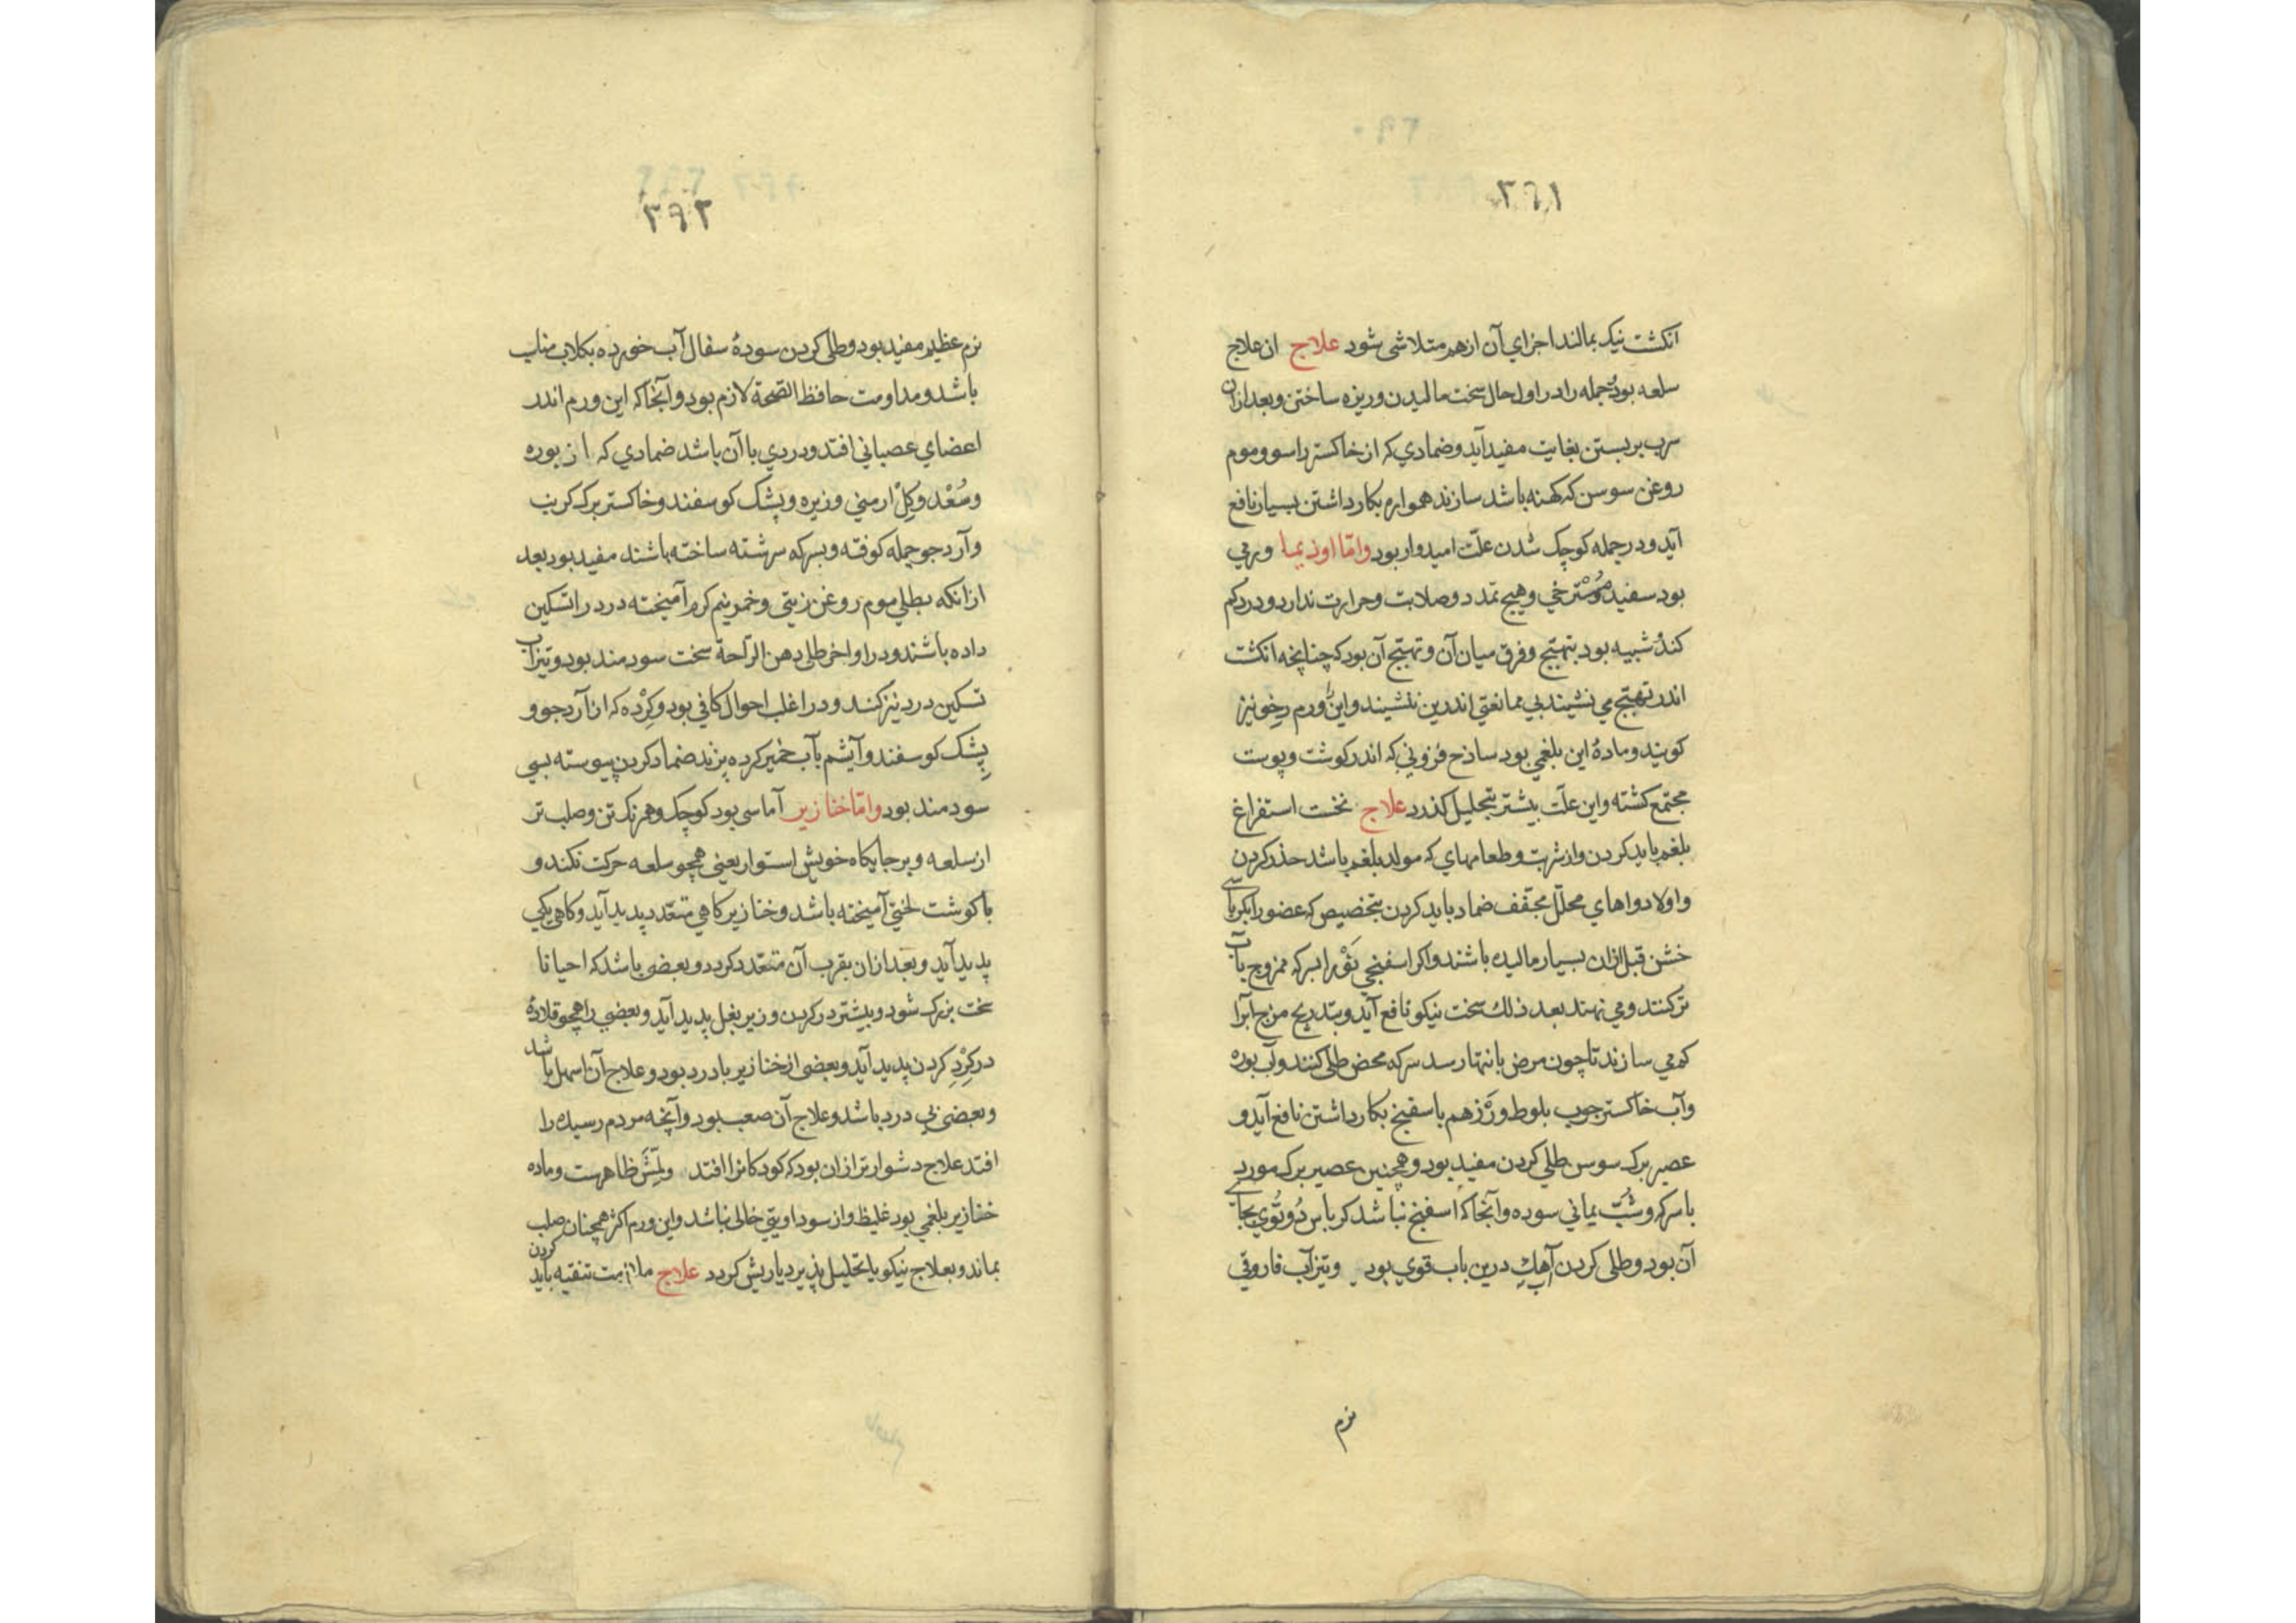 ۳۹۱
انکشت نیک بمالند اجزاي آن ازهم متلاشی شود علاج ان علاج
سلعه بود جمله را در اول حال سخت مالیدن و ریزه ساختن و بعد ازان
سرب بر بستن بغایت مفید آید و ضمادي که از خاکستر راسو و موم
روغن سوسن که کهنه باشد سازند هموارم بکار داشتن بسیار نافع
آید و در جمله کوچک شدن علّت امیدوار بود وامّا اوزیما ورمي
بود سفید مُوسْترخي و هیچ تمدد و صلابت و حرارت ندارد و درد کم
کند و شبیه بود بتهبّج و فرق میان آن و تهبّج آن بود که چنانچه انکشت
اندر تهبّج مي نشیند بي ممانعتي اندرین ننشیند و این ورم رخو نیز
کویند و مادهٔ این بلغمي بود ساذج فزوني که اندر کوشت و پوست
مجتمع کشته و این علّت بیشتر بتحلیل کذرد علاج نخست استفراغ
بلغم باید کردن و از شربت و طعامهاي که مولد بلغم باشد حذر کردن
و اولا دواهاي محلّل مجفف ضماد باید کردن بتخصیص که عضو را بکرباسے
خشن قبل ازان بسیار مالیده باشند و اکر اسفنجي نَوْ را بسرکه ممزوج بآب
تر کنند و مي نهند بعد ذلك سخت نیکو نافع آید و بتدریج مزج آبرا
کم مي سازند تا چون مرض بانتها رسد سرکه محض طلی کنند و آب بوره
و آب خاکستر چوب بلوط و رَز هم باسفنج بکار داشتن نافع آید و
عصیر برك سوسن طلي کردن مفید بود و همچنین عصیر برك مورد
با سرکه و شبّ یماني سوده و آنجا که اسفنج نباشد کرباس دُوتُوي بجاے
آن بود و طلی کردن آهك درین باب قوي بود و تیزآب فاروقي
نرم
۳۹۲
نرم عظیم مفید بود و طلی کردن سودهٔ سفال آب خورده بکلاب مناسب
باشد و مداومت حافظ الصحة لازم بود و آنجا که این ورم اندر
اعضاي عصباني افتد و دردي با آن باشد ضمادي که از بوره
و سُعْد و کِلْ ارمني و زیره و پشک کوسفند و خاکستر برك کرنب
و آرد جو جمله کوفته و بسرکه سرشته ساخته باشند مفید بود بعد
ازانکه بطلي موم روغن زیتي و خمر نیم کرم آمیخته درد را تسکین
داده باشند و در اواخر طلی دهن الراحة سخت سودمند بود و تیزاب
تسکین درد نیز کند و در اغلب احوال کافي بود و کِرْده که از آرد جو و
پِشک کوسفند و آیشم بآب خمیر کرده پزند ضماد کردن پیوسته بسي
سودمند بود وامّا خنازیر آماسی بود کوچک و همرنک تن و صلب تر
از سلعه و بر جایکاه خویش استوار یعني همچو سلعه حرکت نکند و
با کوشت لختي آمیخته باشد و خنازیر کاهي متعدد پدید آید و کاهی یکي
پدید آید و بعد ازان بقرب آن متعدد کردد و بعضی باشد که احیانا
سخت بزرك شود و بیشتر در کردن و زیر بغل پدید آید و بعضي را همچو قلادهٔ
در کِرْدِ کردن پدید آید و بعضی از خنازیر با درد بود و علاج آن اسهل باشد
و بعضی بي درد باشد و علاج آن صعب بود و آنچه مردم رسیده را
افتد علاج دشوارتر ازان بود که کودکانرا افتد ولمِّش ظاهرست و ماده
خنازیر بلغمي بود غلیظ و از سوداویتي خالی نباشد و این ورم اکثر همچنان صلب
بماند و بعلاج نیکو یا تحلیل پذیرد یا ریش کردد علاج ملازمت تنقیه باید کردن